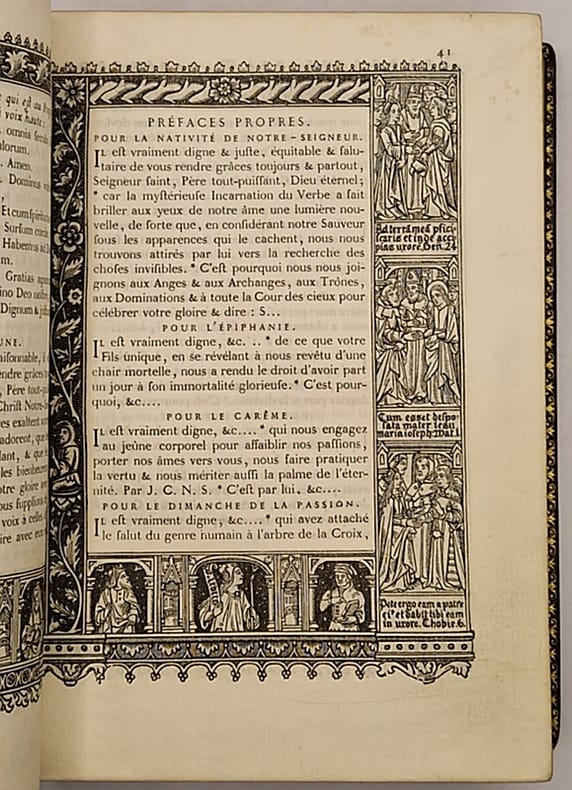 qui est au
voix haute:
omnia
Amen.
Dominus
Et cum
Sursum
Habemus ad
Gratias
Deo
Dignum &
41
PRÉFACES PROPRES.
POUR LA NATIVITÉ DE NOTRE-SEIGNEUR.
IL eſt vraiment digne & juſte, équitable & ſalu-
taire de vous rendre grâces toujours & partout,
Seigneur ſaint, Père tout-puiſſant, Dieu éternel;
* car la myſtérieuſe Incarnation du Verbe a fait
briller aux yeux de notre âme une lumière nou-
velle, de ſorte que, en conſidérant notre Sauveur
ſous les apparences qui le cachent, nous nous
trouvons attirés par lui vers la recherche des
choſes inviſibles. * C'eſt pourquoi nous nous joi-
gnons aux Anges & aux Archanges, aux Trônes,
aux Dominations & à toute la Cour des cieux pour
célébrer votre gloire & dire : S...
POUR L'ÉPIPHANIE.
IL eſt vraiment digne, &c. .. * de ce que votre
Fils unique, en se révélant à nous revêtu d'une
chair mortelle, nous a rendu le droit d'avoir part
un jour à ſon immortalité glorieuſe. * C'eſt pour-
quoi, &c....
POUR LE CARÊME.
IL eſt vraiment digne, &c.... * qui nous engagez
au jeûne corporel pour affaiblir nos paſſions,
porter nos âmes vers vous, nous faire pratiquer
la vertu & nous mériter auſſi la palme de l'éter-
nité. Par J. C. N. S. * C'eſt par lui, &c....
POUR LE DIMANCHE DE LA PASSION.
IL eſt vraiment digne, &c.... * qui avez attaché
le ſalut du genre humain à l'arbre de la Croix,
Ad terrã meã pſiciſ
caris et inde acci
pias uxorē. Gen. 24
Cum eſſet deſpo
ſata mater ieſu
maria ioſeph. Mat. 1.
Pete ergo eam a patre
ei⁹ et dabit tibi eam
in uxorē. Thobie. 6.